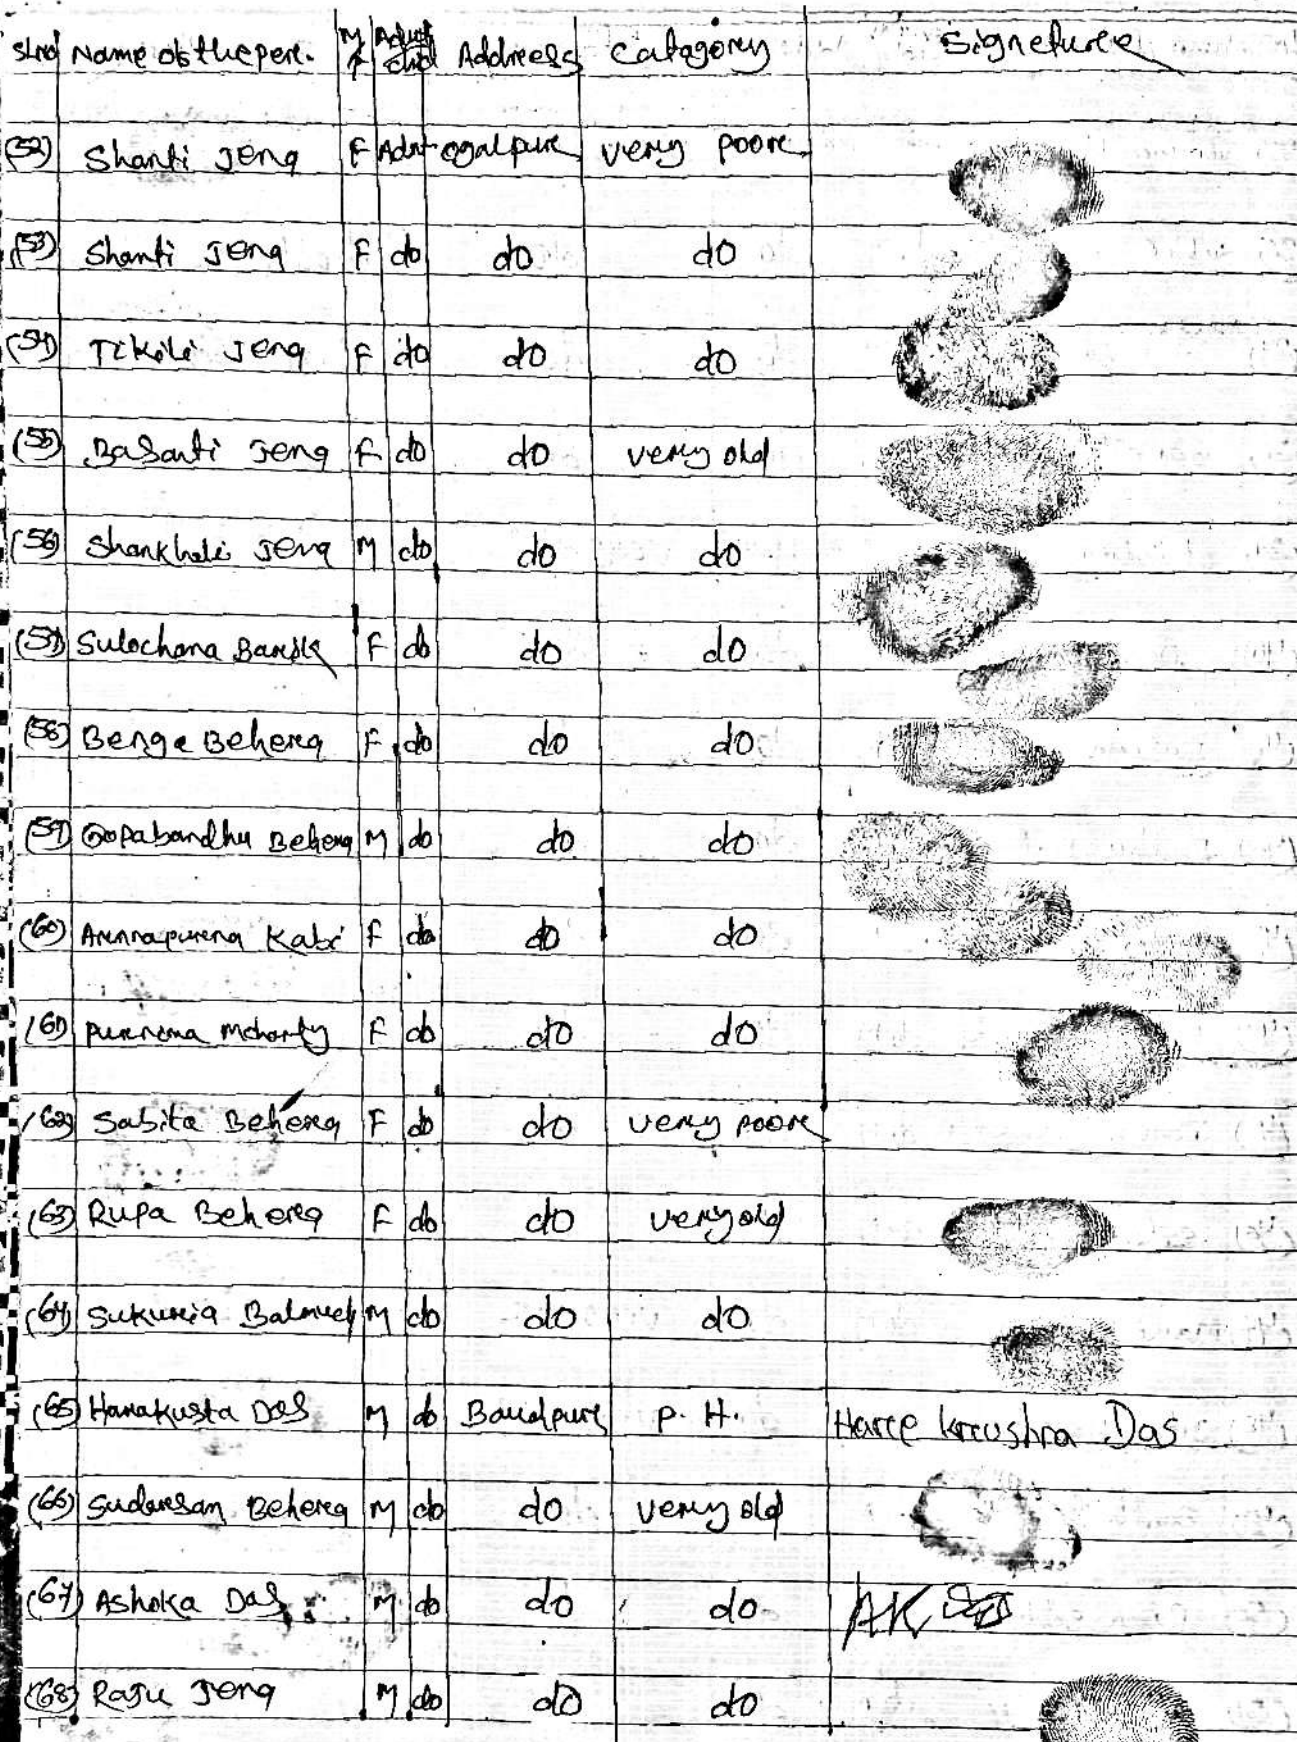 Sl.no Name of the pere. M/F Adult/child Address Catagory Signeture
(52) Shanti Jena F Adut ogalpur very poor
(53) Shanti Jena F do do do
(54) Tikili Jena F do do do
(55) Basanti Jena F do do very old
(56) Shankhali Jena M do do do
(57) Sulochana Barik F do do do
(58) Benga Behera F do do do
(59) Gopabandhu Behera M do do do
(60) Annapurna Kabi F do do do
(61) purnima Mohanty F do do do
(62) Sabita Behera F do do very poor
(63) Rupa Behera F do do very old
(64) Sukuria M do do do
(65) Harakusta Das M do Baudpur P. H. Hare krushna Das
(66) Sudarsan Behera M do do very old
(67) Ashoka Das M do do do AK Das
(68) Raju Jena M do do do